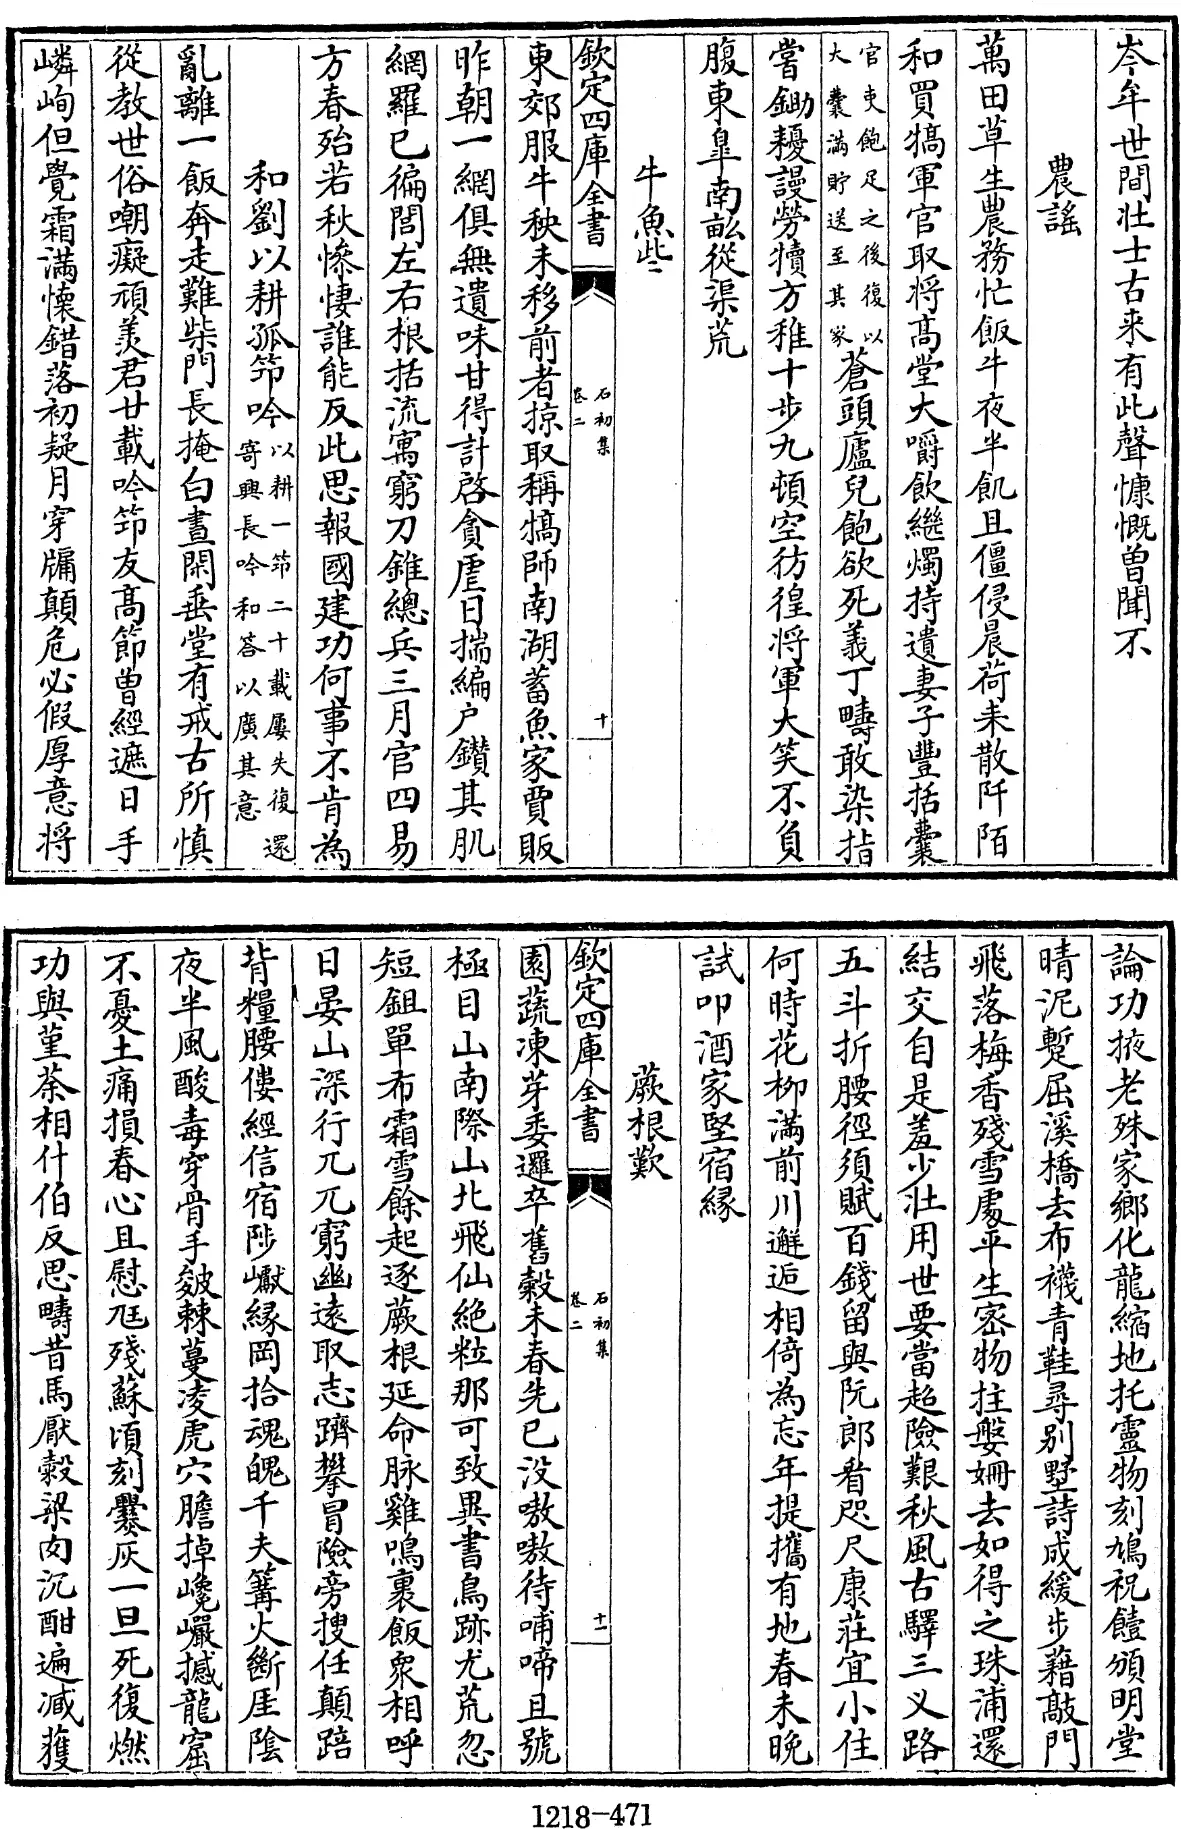 岑牟世間壯士古来有此聲慷慨曽聞不
農謡
萬田草生農務忙飯牛夜半飢且僵侵晨荷耒散阡陌
和買犒軍官取将髙堂大嚼飲繼燭持遺妻子豐括囊
官吏飽足之後復以
大囊滿貯送至其家
蒼頭廬兒飽欲死義丁疇敢染指
嘗鋤耰謾勞犢方稚十步九頓空彷徨将軍大笑不負
腹東臯南畝從渠荒
牛魚些
東郊服牛秧未移前者掠取稱犒師南湖蓄魚家賈販
昨朝一網俱無遺味甘得計啓貪虐日揣編户鑚其肌
網羅已徧閭左右根括流寓窮刀錐總兵三月官四易
方春殆若秋慘悽誰能反此思報國建功何事不肯為
和劉以耕孤筇吟
以耕一筇二十載屢失復還
寄興長吟和答以廣其意
亂離一飯奔走難柴門長掩白晝閑垂堂有戒古所慎
從教世俗嘲癡頑羨君廿載吟筇友髙節曽經遮日手
嶙峋但覺霜滿懐錯落初疑月穿牖顛危必假厚意将
欽定四庫全書
石初集
卷二
十
論功掖老殊家鄉化龍縮地托靈物刻鳩祝饐頒明堂
晴泥蹔屈溪橋去布襪青鞋尋别墅詩成緩步藉敲門
飛落梅香殘雪處平生宻物拄盤姍去如得之珠浦還
結交自是羞少壯用世要當超險艱秋風古驛三义路
五斗折腰徑須賦百錢留與阮郎看咫尺康莊宜小住
何時花栁滿前川邂逅相倚為忘年提攜有地春未晚
試叩酒家堅宿縁
蕨根歎
園蔬凍芽委邏卒舊榖未舂先已没嗷嗷待哺啼且號
極目山南際山北飛仙絶粒那可致異書鳥跡尤荒忽
短鉏單布霜雪餘起逐蕨根延命脉雞鳴裹飯衆相呼
日晏山深行兀兀窮幽遠取志躋攀冒險旁搜任顛踣
背糧腰僂經信宿陟巘縁岡拾魂魄千夫篝火斷厓陰
夜半風酸毒穿骨手皴棘蔓凌虎穴膽掉巉巖撼龍窟
不憂土痛損春心且慰尫殘蘇頃刻爨灰一旦死復燃
功與堇荼相什伯反思疇昔馬厭榖粱肉沉酣遍减獲
欽定四庫全書
石初集
卷二
十一
1218-471